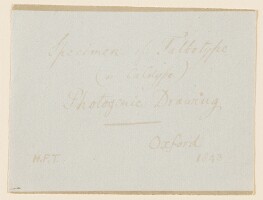 Specimen of Talbotype
(or Calotype)
Photogenic Drawing.
Oxford
H.F.T.